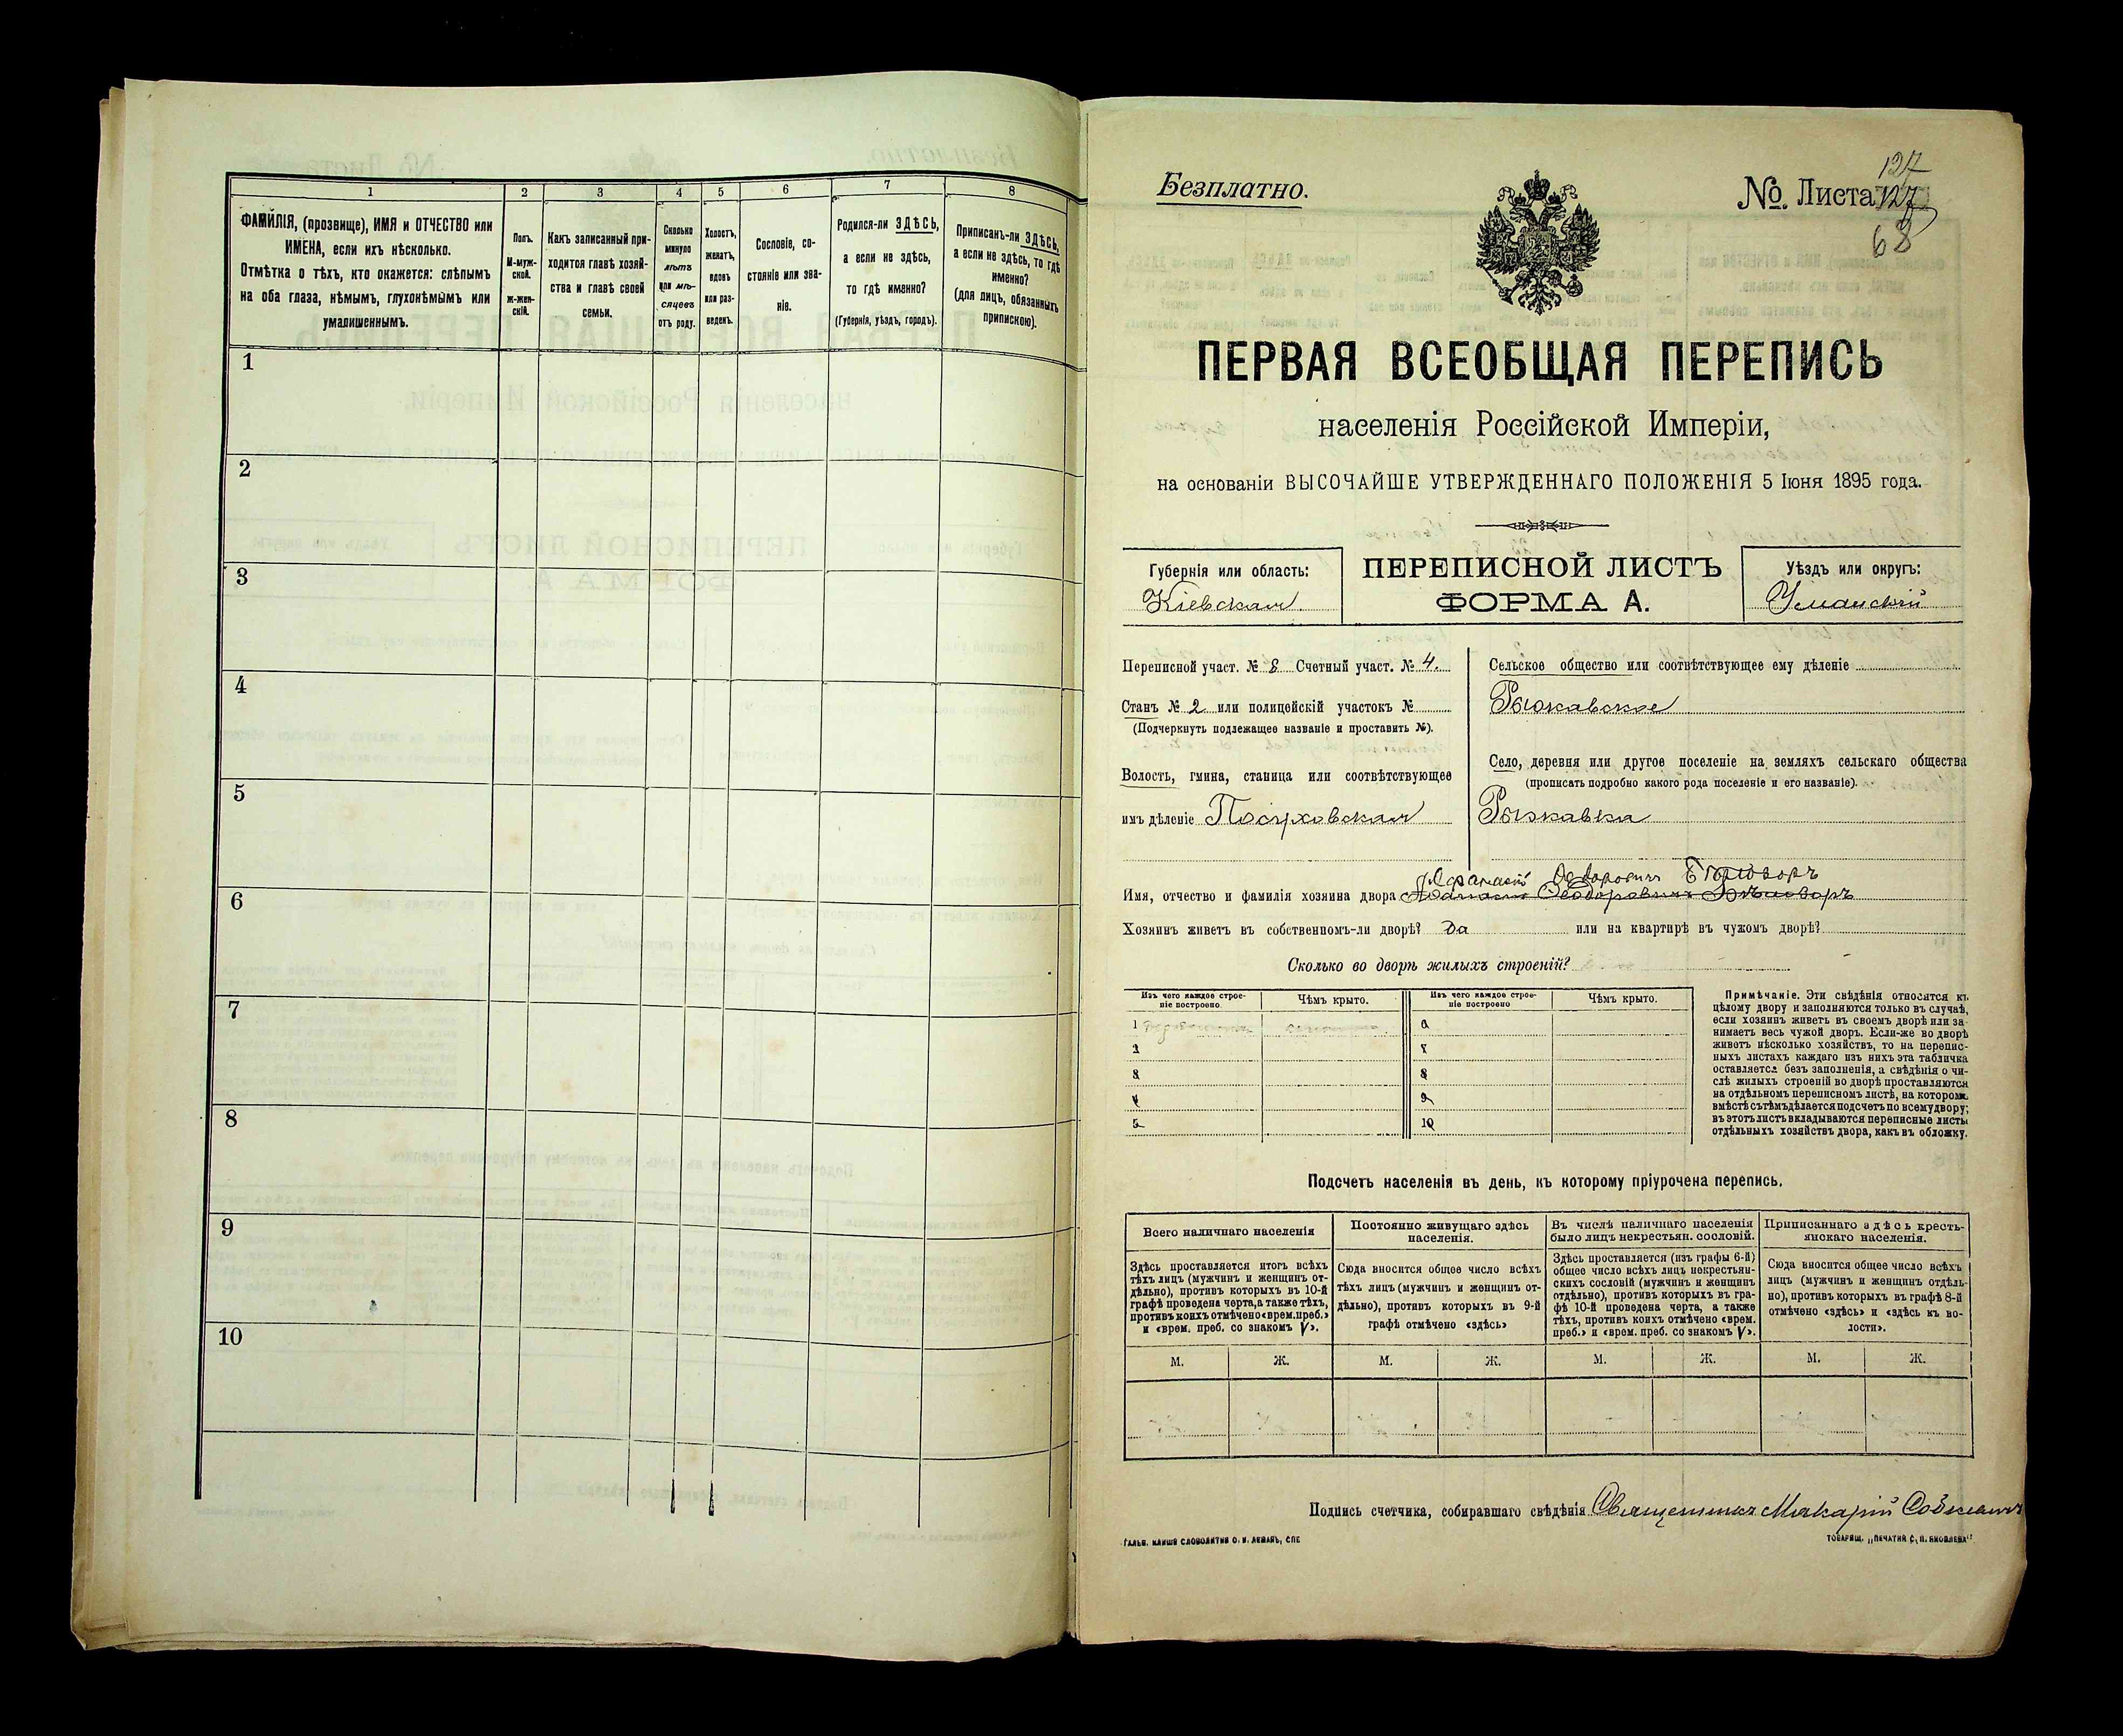 1 2 3 4 5 6 7 8
ФАМИЛІЯ, (прозвище), ИМЯ и ОТЧЕСТВО или
ИМЕНА, если ихъ нѣсколько.
Отмѣтка о тѣхъ, кто окажется: слѣпымъ
на оба глаза, нѣмымъ, глухонѣмымъ или
умалишеннымъ.
Полъ.
М-муж-
ской.
ж-жен-
скій.
Какъ записанный при-
ходится главѣ хозяй-
ства и главѣ своей
семьи.
Сколько
минуло
лѣтъ
или мѣ-
сяцевъ
отъ роду.
Холостъ,
женатъ,
вдовъ
или раз-
веденъ.
Сословіе, со-
стояніе или зва-
ніе.
Родился-ли ЗДѢСЬ,
а если не здѣсь,
то гдѣ именно?
(Губернія, уѣздъ, городъ).
Приписанъ-ли ЗДѢСЬ,
а если не здѣсь, то гдѣ
именно?
(для лицъ, обязанныхъ
припискою).
1
2
3
4
5
6
7
8
9
10
Безплатно.
127
№ Листа 127
68
ПЕРВАЯ ВСЕОБЩАЯ ПЕРЕПИСЬ
населенія Россійской Имперіи,
на основаніи ВЫСОЧАЙШЕ УТВЕРЖДЕННАГО ПОЛОЖЕНІЯ 5 Іюня 1895 года.
Губернія или область:
Кіевская
ПЕРЕПИСНОЙ ЛИСТЪ
ФОРМА А.
Уѣздъ или округъ:
Уманскій
Переписной участ. № 8 Счетный участ. № 4.
Станъ № 2 или полицейскій участокъ №
(Подчеркнуть подлежащее названіе и проставить №).
Волость, гмина, станица или соотвѣтствующее
имъ дѣленіе Посуховская
Сельское общество или соотвѣтствующее ему дѣленіе
Рыжавское
Село, деревня или другое поселеніе на земляхъ сельскаго общества
(прописать подробно какого рода поселеніе и его названіе).
Рыжавка
Афанасій Ѳедоровичъ
Имя, отчество и фамилія хозяина двора
Хозяинъ живетъ въ собственномъ-ли дворѣ? да или на квартирѣ въ чужомъ дворѣ?
Сколько во дворѣ жилыхъ строеній?
Изъ чего каждое строе-
ніе построено
Чѣмъ крыто.
Изъ чего каждое строе-
ніе построено
Чѣмъ крыто.
1
2
3
4
5
6
7
8
9
10
Примѣчаніе. Эти свѣдѣнія относятся къ
цѣлому двору и заполняются только въ случаѣ,
если хозяинъ живетъ въ своемъ дворѣ или за-
нимаетъ весь чужой дворъ. Если-же во дворѣ
живетъ нѣсколько хозяйствъ, то на перепис-
ныхъ листахъ каждаго изъ нихъ эта табличка
оставляется безъ заполненія, а свѣдѣнія о чи-
слѣ жилыхъ строеній во дворѣ проставляются
на отдѣльномъ переписномъ листѣ, на которомъ
вмѣстѣ съ тѣмъ дѣлается подсчетъ по всему двору;
въ этотъ листъ вкладываются переписные листы
отдѣльныхъ хозяйствъ двора, какъ въ обложку.
Подсчетъ населенія въ день, къ которому пріурочена перепись.
Всего наличнаго населенія
Здѣсь проставляется итогъ всѣхъ
тѣхъ лицъ (мужчинъ и женщинъ от-
дѣльно), противъ которыхъ въ 10-й
графѣ проведена черта, а также тѣхъ,
противъ коихъ отмѣчено «врем. преб.»
и «врем. преб. со знакомъ V».
Постоянно живущаго здѣсь
населенія.
Сюда вносится общее число всѣхъ
тѣхъ лицъ (мужчинъ и женщинъ от-
дѣльно), противъ которыхъ въ 9-й
графѣ отмѣчено «здѣсь»
Въ числѣ наличнаго населенія
было лицъ некрестьян. сословій.
Здѣсь проставляется (изъ графы 6-й)
общее число всѣхъ лицъ некрестьян-
скихъ сословій (мужчинъ и женщинъ
отдѣльно), противъ которыхъ въ гра-
фѣ 10-й проведена черта, а также
тѣхъ, противъ коихъ отмѣчено «врем.
преб.» и «врем. преб. со знакомъ V».
Приписаннаго здѣсь кресть-
янскаго населенія.
Сюда вносится общее число всѣхъ
лицъ (мужчинъ и женщинъ отдѣль-
но), противъ которыхъ въ графѣ 8-й
отмѣчено «здѣсь» и «здѣсь къ во-
лости».
М. Ж. М. Ж. М. Ж. М. Ж.
Подпись счетчика, собиравшаго свѣдѣнія Священникъ Макарій Собкевичъ
ГАЛЬВ. КЛИШЕ СЛОВОЛИТНИ О. И. ЛЕМАНЪ, СПБ
ТОВАРИЩ. „ПЕЧАТНЯ С. П. ЯКОВЛЕВА"